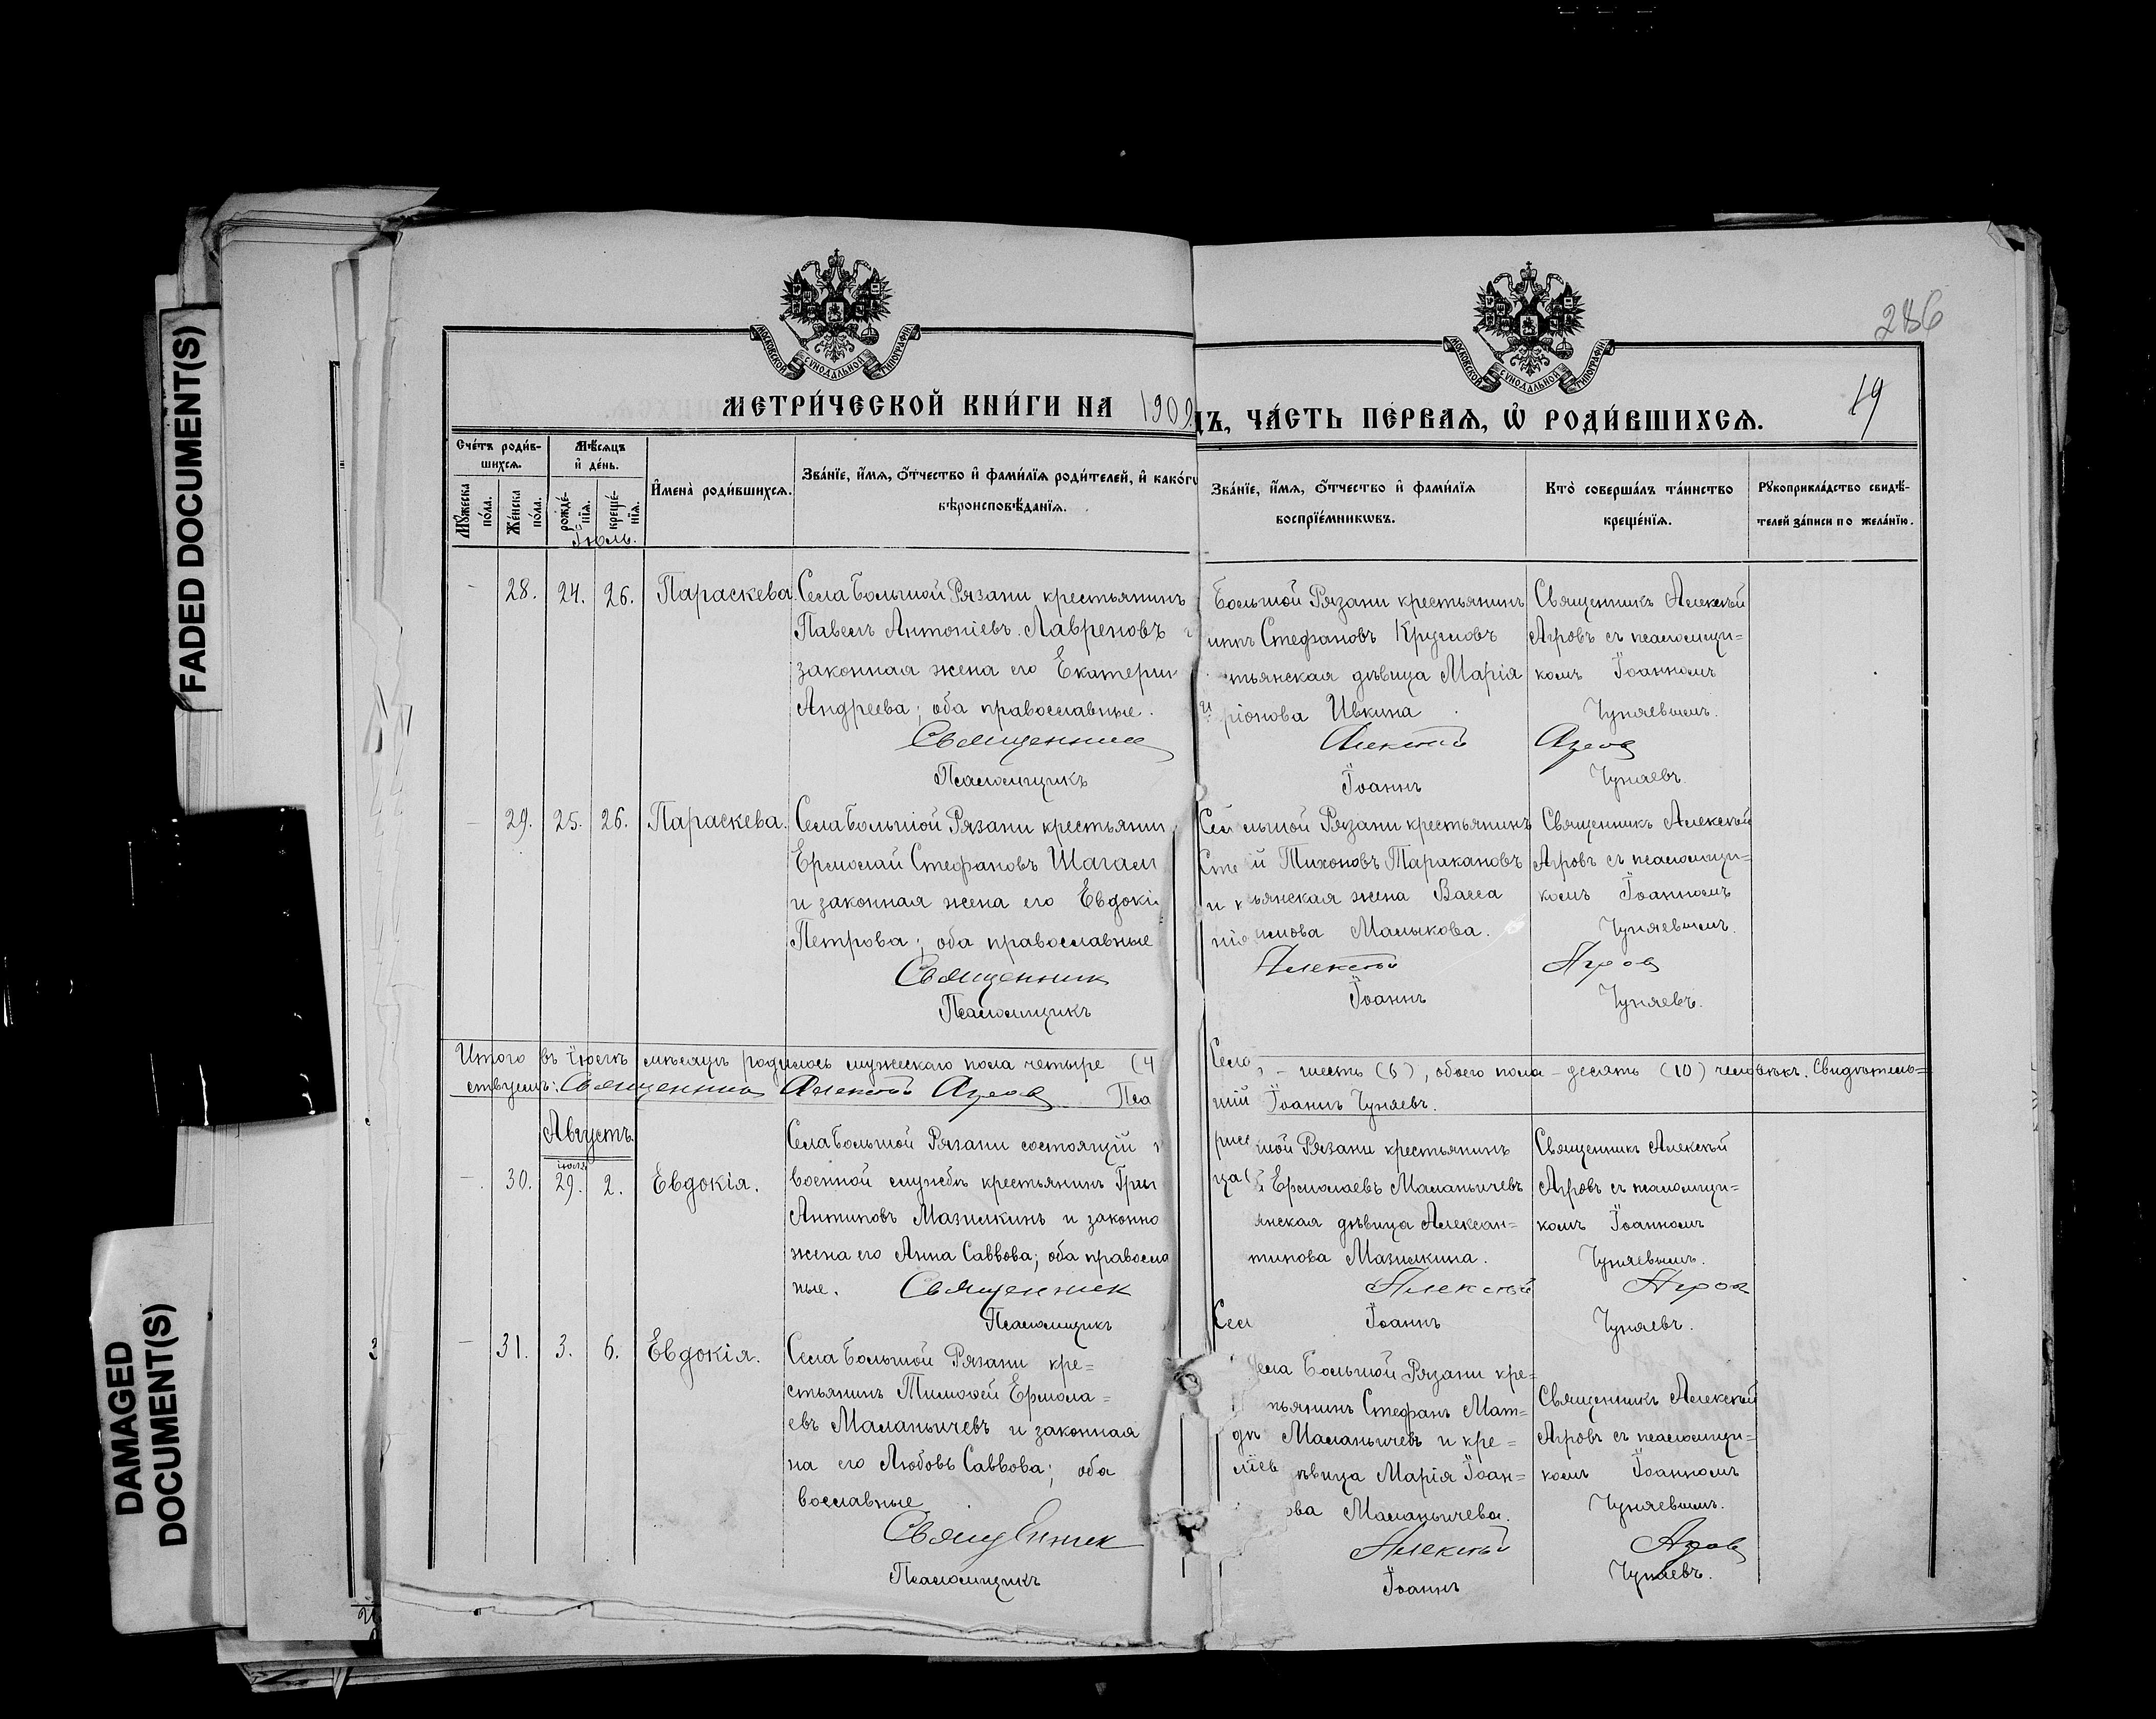 FADED DOCUMENT(S)
DAMAGED
DOCUMENT(S)
286
19
МОСКОВСКОЙ СѴНОДАЛЬНОЙ ТИПОГРАФІИ
МОСКОВСКОЙ СѴНОДАЛЬНОЙ ТИПОГРАФІИ
МЕТРИ́ЧЕСКОЙ КНИ́ГИ НА 1909
ДЪ, ЧА́СТЬ ПЕ́РВАЯ, Ѡ҆ РОДИ́ВШИХСЯ.
Сче́тъ роди́в-
шихся.
Мꙋ́жеска по́ла.
Же́нска по́ла.
Мѣ́сяцъ
и҆ де́нь.
рожде́-
нїя.
креще́-
нїя.
И҆мена̀ роди́вшихся.
Зва́нїе, и҆́мя, о҆́тчество и҆ фами́лїя роди́телей, и҆ како́гѡ
вѣроисповѣ́данїя.
Зва́нїе, и҆́мя, о҆́тчество и҆ фами́лїя
воспрїе́мникѡвъ.
Кто̀ соверша́лъ та́инство
креще́нїя.
Рꙋкоприкла́дство свидѣ́-
телей за́писи по жела́нїю.
Іюль.
- 28. 24. 26. Параскева.
Села Большой Рязани крестьянинъ
Павелъ Антоніевъ Лавреновъ
законная жена его Екатери
Андреева; оба православные.
Священник
Псаломщикъ
Большой Рязани крестьянинъ
инъ Стефановъ Кругловъ
тьянская дѣвица Марія
ріонова Ивкина
Алексѣй
Іоаннъ
Священникъ Алексѣй
Агровъ съ псаломщи=
комъ Іоанномъ
Чуняевымъ.
Агров
Чуняевъ.
- 29. 25. 26. Параскева.
Села Большой Рязани крестьянин
Ермолай Стефановъ Шагал
и законная жена его Евдокі
Петрова; оба православные
Священник
Псаломщикъ
льшой Рязани крестьянинъ
й Тихоновъ Таракановъ
ьянская жена Васса
Малыкова.
Алексѣй
Іоаннъ
Священникъ Алексѣй
Агровъ съ псаломщи=
комъ Іоанномъ
Чуняевымъ.
Агров
Чуняевъ.
Итого въ іюлѣ мѣсяцѣ родилось мужескаго пола четыре (4
шесть (6), обоего пола - десять (10) человѣкъ. Свидѣтель=
ствуемъ: Священник Алексѣй Агров Пса
Іоаннъ Чуняевъ.
Августъ.
- 30. іюля 29. 2. Евдокія.
Села Большой Рязани состоящій
военной службѣ крестьянинъ Григ
Антиповъ Мазилкинъ и законно
жена его Анна Саввова; оба правосла
ные. Священник
Псаломщикъ
шой Рязани крестьянинъ
Ермолаевъ Маланьичевъ
янская дѣвица Алексан=
типова Мазилкина.
Алексѣй
Іоаннъ
Священникъ Алексѣй
Агровъ съ псаломщи=
комъ Іоанномъ
Чуняевымъ.
Агров
Чуняевъ.
- 31. 3. 6. Евдокія.
Села Большой Рязани кре=
стьянинъ Тимоѳей Ермола=
евъ Маланьичевъ и законная
на его Любовь Саввова; оба
вославные
Священник
Псаломщикъ
ела Большой Рязани кре=
тьянинъ Стефанъ Мат=
Маланьичевъ и кре=
ѣвица Марія Іоан=
ова Маланьичева.
Алексѣй
Іоаннъ
Священникъ Алексѣй
Агровъ съ псаломщи=
комъ Іоанномъ
Чуняевымъ.
Агров
Чуняевъ.